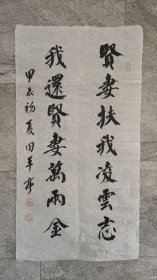 賢妻扶我凌雲志
我還賢妻萬兩金
甲辰初夏田羊亭